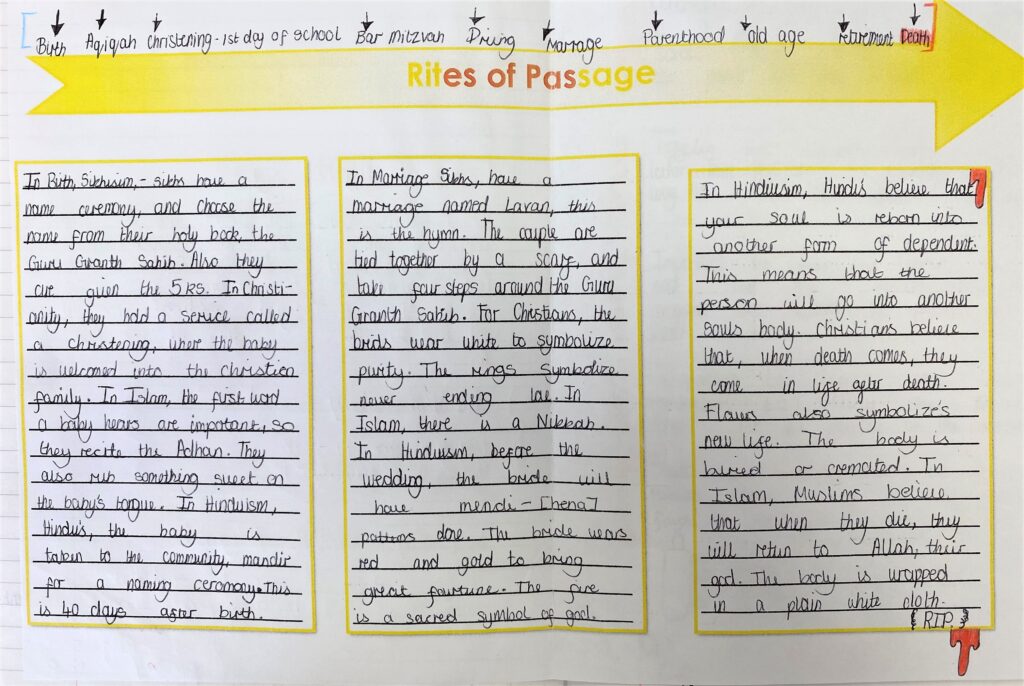 Birth Aqiqah christening - 1st day of school Bar mitzvah Driving Marrage Parenthood old age retirement Death
Rites of Passage
In Birth, Sikhisum, - sikhs have a
name ceremony, and choose the
name from their holy book, the
Guru Granth Sahib. Also they
are given the 5ks. In Christi-
anity, they hold a service called
a christening, where the baby
is welcomed into the christian
family. In Islam, the first word
a baby hears are important, so
they recite the Adhan. They
also rub something sweet on
the baby's tongue. In Hinduism,
Hindu's, the baby is
taken to the community, mandir
for a naming ceromony. This
is 40 days after birth.
In Marriage Sikhs, have a
marriage named Lavan, this
is the hymn. The couple are
tied together by a scarf, and
take four steps around the Guru
Granth Sahib. For Christians, the
brids wear white to symbolize
purity. The rings symbolize
never ending love. In
Islam, there is a Nikkah.
In Hinduism, before the
wedding, the bride will
have mendi - [hena]
pattrons done. The bride wears
red and gold to bring
great fourtune. The fire
is a sacred symbol of god.
In Hinduisim, Hindus believe that
your soul is reborn into
another form of dependent.
This means that the
person will go into another
souls body. Christians believe
that, when death comes, they
come in life after death.
Flowers also symbolize's
new life. The body is
buried or cremated. In
Islam, Muslims believe
that when they die, they
will return to Allah, their
god. The body is wrapped
in a plain white cloth.
RIP.